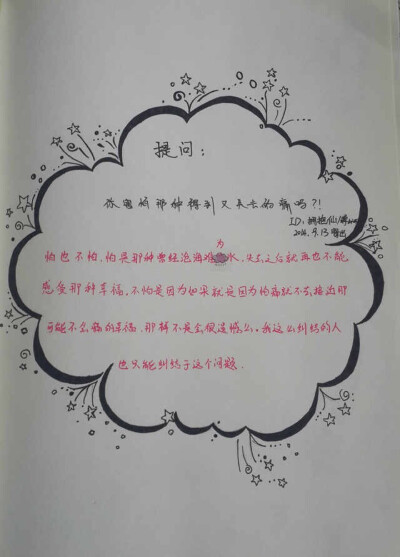 提问：
你害怕那种得到又失去的痛吗？！
ID：拥抱仙
2016.9.13
为
怕也不怕，怕是那种曾经沧海难水，失去之后就再也不能
感受那种幸福，不怕是因为如果就是因为怕痛就不去接近那
可能不会痛的幸福，那样不是会很遗憾么。我这么纠结的人
也只能纠结于这个问题.